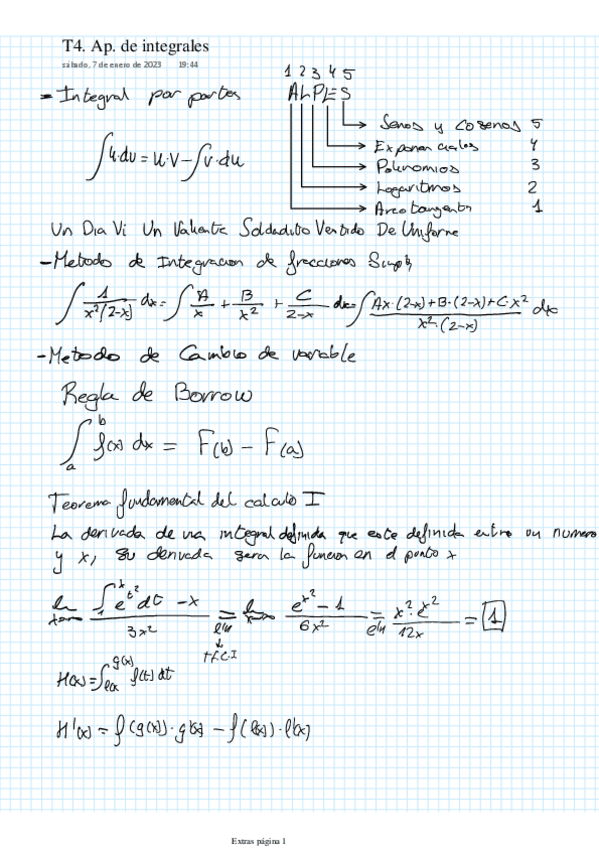 T4. Ap. de integrales
sábado, 7 de enero de 2023 19:44
1 2 3 4 5
- Integral por partes ALPES
Senos y Cosenos 5
∫u·dv = u·v - ∫v·du
Exponenciales 4
Polinomios 3
Logaritmos 2
Arcotangente 1
Un Dia Vi Un Valiente Soldadito Vestido De Uniforme
- Metodo de Integracion de fracciones Simpl
∫ 1/(x²(2-x)) dx = ∫ A/x + B/x² + C/(2-x) dx = ∫ (Ax·(2-x)+B·(2-x)+C·x²)/(x²·(2-x)) dx
- Metodo de Cambio de variable
Regla de Borrow
∫ₐᵇ f(x) dx = F(b) - F(a)
Teorema fundamental del calculo I
La derivada de una integral definida que este definida entre un numero
y x, su derivada sera la funcion en el punto x
(∫₁ˣ e^(t²) dt - x)/(3x²) = (e^(x²) - 1)/(6x²) = (x²·e^(x²))/(12x) = 1
T.F.C.I
H(x) = ∫ g(x) l(x) f(t) dt
H'(x) = f(g(x))·g'(x) - f(l(x))·l'(x)
Extras página 1